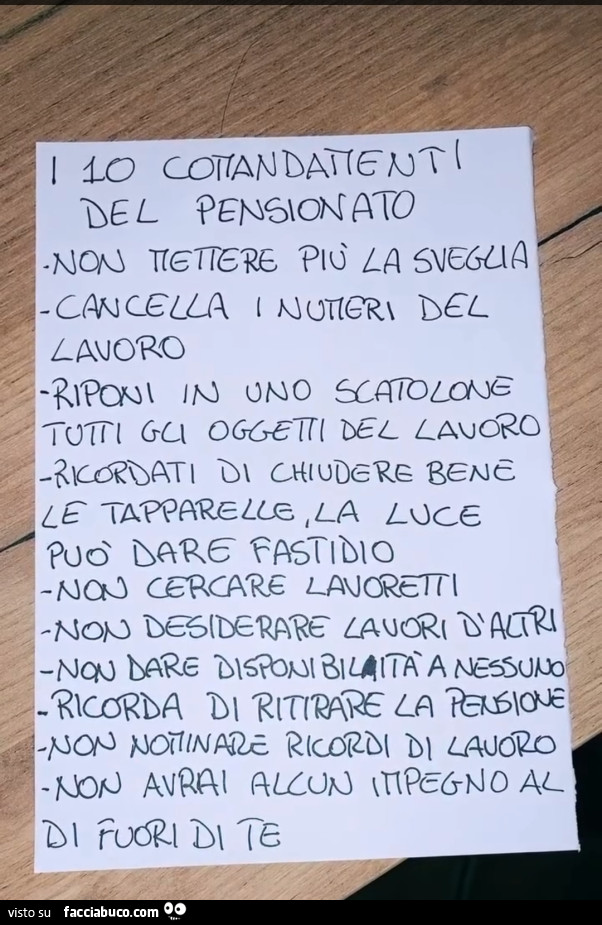 I 10 COMANDAMENTI
DEL PENSIONATO
-NON METTERE PIÙ LA SVEGLIA
-CANCELLA I NUMERI DEL
LAVORO
-RIPONI IN UNO SCATOLONE
TUTTI GLI OGGETTI DEL LAVORO
-RICORDATI DI CHIUDERE BENE
LE TAPPARELLE, LA LUCE
PUO' DARE FASTIDIO
-NON CERCARE LAVORETTI
-NON DESIDERARE LAVORI D'ALTRI
-NON DARE DISPONIBILITÀ A NESSUNO
-RICORDA DI RITIRARE LA PENSIONE
-NON NOMINARE RICORDI DI LAVORO
-NON AVRAI ALCUN IMPEGNO AL
DI FUORI DI TE
visto su facciabuco.com